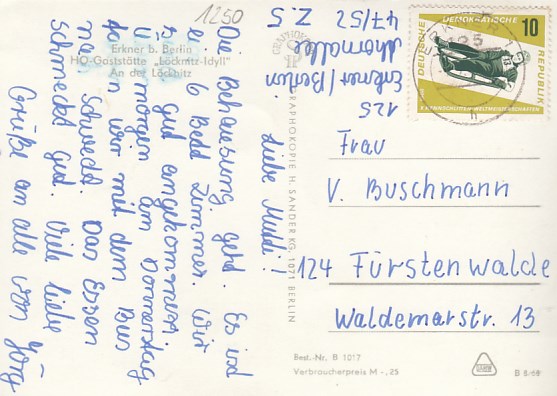 1250
Erkner b. Berlin
HO-Gaststätte „Löcknitz-Idyll"
An der Löcknitz
Liebe Mudi!
Die Behausung geht. Es ist
ein 6 Bett Zimmer. Wir
sind gut angekommen.
morgen am Donnerstag
fahren wir mit dem Bus
nach Schwedt. Das Essen
schmeckt gut. Viele liebe
Grüße an alle von Jörg
Z.5
47/52
Erkner/Berlin
125
GRAPHOKOPIE H. SANDER KG, 1071 BERLIN
DEUTSCHE DEMOKRATISCHE REPUBLIK
10
X. RENNSCHLITTEN-WELTMEISTERSCHAFTEN
125
Frau
V. Buschmann
124 Fürstenwalde
Waldemarstr. 13
Best.-Nr. B 1017
Verbraucherpreis M -,25
B 8/68